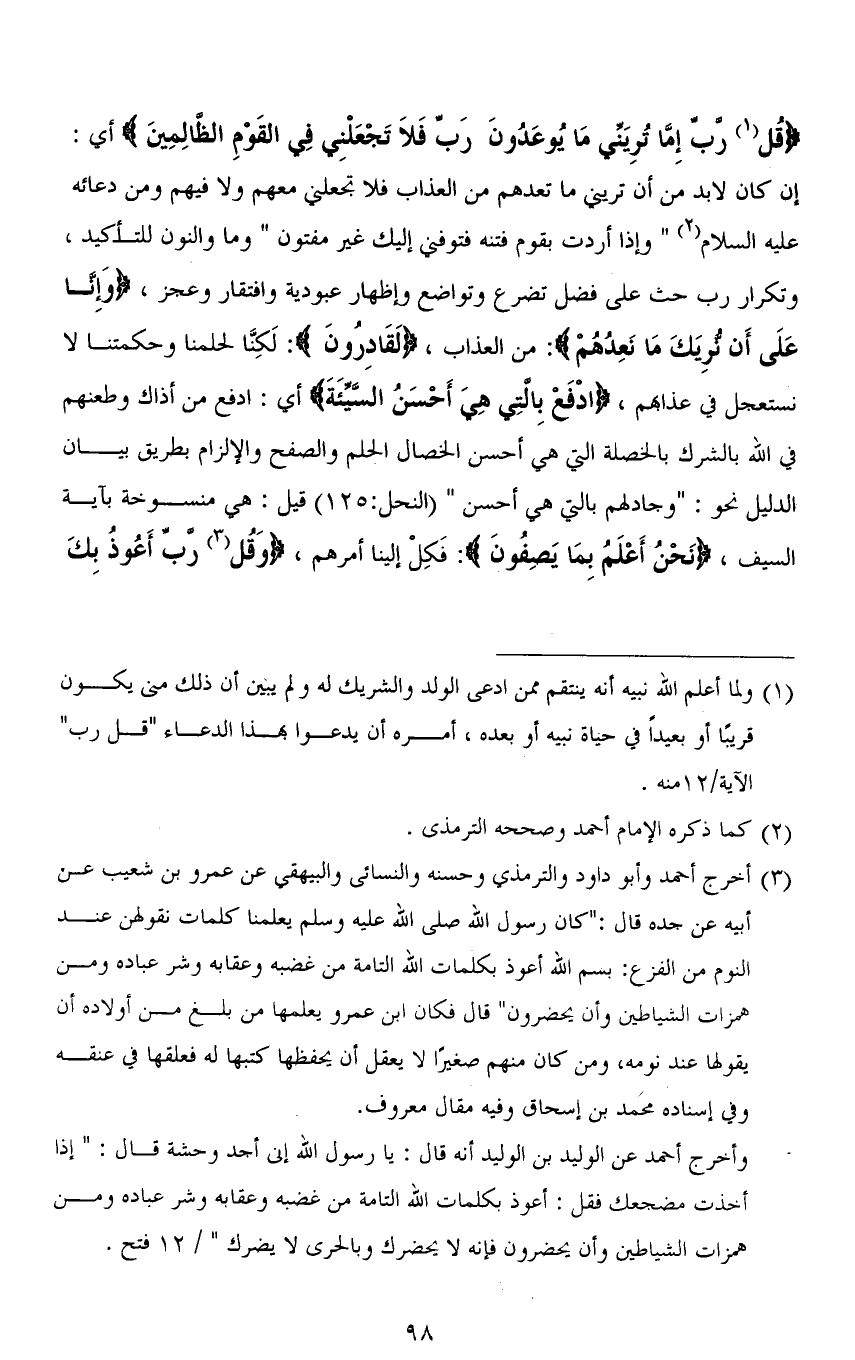 ﴿قُل(١) رَّبِّ إِمَّا تُرِيَنِّي مَا يُوعَدُونَ رَبِّ فَلاَ تَجْعَلْنِي فِي القَوْمِ الظَّالِمِينَ ﴾ أي :
إن كان لابد من أن تريني ما تعدهم من العذاب فلا تجعلني معهم ولا فيهم ومن دعائه
عليه السلام(٢) " وإذا أردت بقوم فتنه فتوفني إليك غير مفتون " وما والنون للتأكيد ،
وتكرار رب حث على فضل تضرع وتواضع وإظهار عبودية وافتقار وعجز ، ﴿وَإِنَّا
عَلَى أَن نُّرِيَكَ مَا نَعِدُهُمْ﴾: من العذاب ، ﴿لَقَادِرُونَ ﴾: لَكِنَّا لحلمنا وحكمتنا لا
نستعجل في عذاهم ، ﴿ادْفَعْ بِالَّتِي هِيَ أَحْسَنُ السَّيِّئَةَ﴾ أي : ادفع من أذاك وطعنهم
في الله بالشرك بالخصلة التي هي أحسن الخصال الحلم والصفح والإلزام بطريق بيان
الدليل نحو : "وجادلهم بالتي هي أحسن " (النحل:١٢٥) قيل : هي منسوخة بآية
السيف ، ﴿نَحْنُ أَعْلَمُ بِمَا يَصِفُونَ ﴾: فَكِلْ إلينا أمرهم ، ﴿وَقُل(٣) رَّبِّ أَعُوذُ بِكَ
(١) ولما أعلم الله نبيه أنه ينتقم ممن ادعى الولد والشريك له و لم يبين أن ذلك متى يكون
قريبًا أو بعيداً في حياة نبيه أو بعده ، أمره أن يدعوا بهذا الدعاء "قل رب"
الآية/١٢منه .
(٢) كما ذكره الإمام أحمد وصححه الترمذى .
(٣) أخرج أحمد وأبو داود والترمذي وحسنه والنسائى والبيهقي عن عمرو بن شعيب عن
أبيه عن جده قال :"كان رسول الله صلى الله عليه وسلم يعلمنا كلمات نقولهن عند
النوم من الفزع: بسم الله أعوذ بكلمات الله التامة من غضبه وعقابه وشر عباده ومن
همزات الشياطين وأن يحضرون" قال فكان ابن عمرو يعلمها من بلغ من أولاده أن
يقولها عند نومه، ومن كان منهم صغيرًا لا يعقل أن يحفظها كتبها له فعلقها في عنقه
وفي إسناده محمد بن إسحاق وفيه مقال معروف.
وأخرج أحمد عن الوليد بن الوليد أنه قال : يا رسول الله إنى أجد وحشة قال : " إذا
أخذت مضجعك فقل : أعوذ بكلمات الله التامة من غضبه وعقابه وشر عباده ومن
همزات الشياطين وأن يحضرون فإنه لا يحضرك وبالحرى لا يضرك " / ١٢ فتح .
٩٨